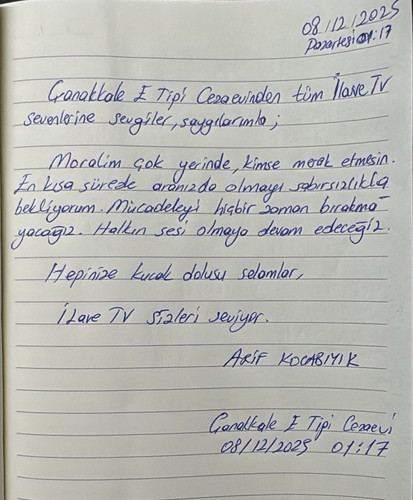 08/12/2025
Pazartesi 01:17
Çanakkale E Tipi Cezaevinden tüm İlave TV
sevenlerine sevgiler, saygılarımla;
Moralim çok yerinde, kimse merak etmesin.
En kısa sürede aranızda olmayı sabırsızlıkla
bekliyorum. Mücadeleyi hiçbir zaman bırakma-
yacağız. Halkın sesi olmaya devam edeceğiz.
Hepinize kucak dolusu selamlar,
İlave TV sizleri seviyor.
ARİF KOCABIYIK
Çanakkale E Tipi Cezaevi
08/12/2025 01:17